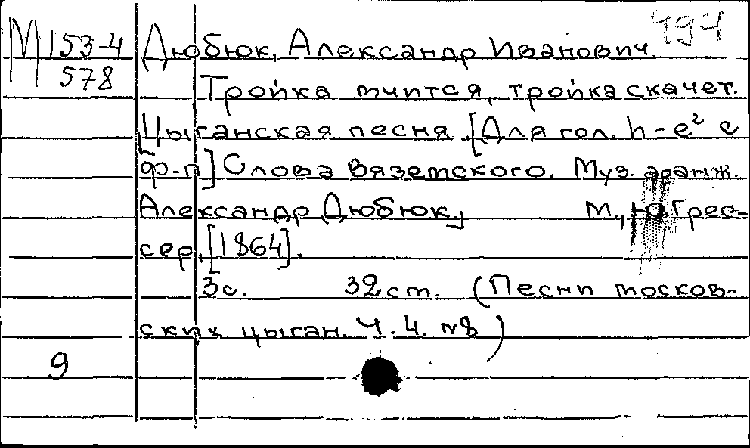 М 153-4
578
Дюбюк, Александр Иванович.
Тройка мчится, тройка скачет.
Цыганская песня. [Для гол. h-e² с
ф-п] Слова Вяземского. Муз. аранж.
Александр Дюбюк. М., Ю. Грес-
сер, [1864].
3с. 32 ст. (Песни москов-
ских цыган. Ч. 4. №8)
9